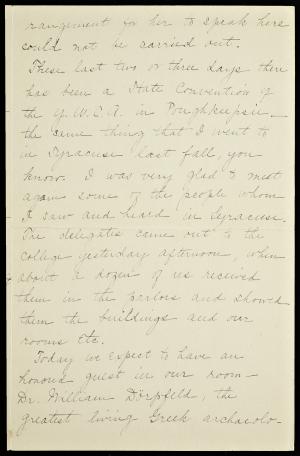 rangement for her to speak here
could not be carried out.
These last two or three days there
has been a State Convention of
the Y.W.C.A. in Poughkeepsie -
the same thing that I went to
in Syracuse last fall, you
know. I was very glad to meet
again some of the people whom
I saw and heard in Syracuse.
The delegates came out to the
college yesterday afternoon, when
about a dozen of us received
them in the parlors and showed
them the buildings and our
rooms etc.
Today we expect to have an
honored guest in our room -
Dr. William Dörpfeld, the
greatest living Greek archaeolo-